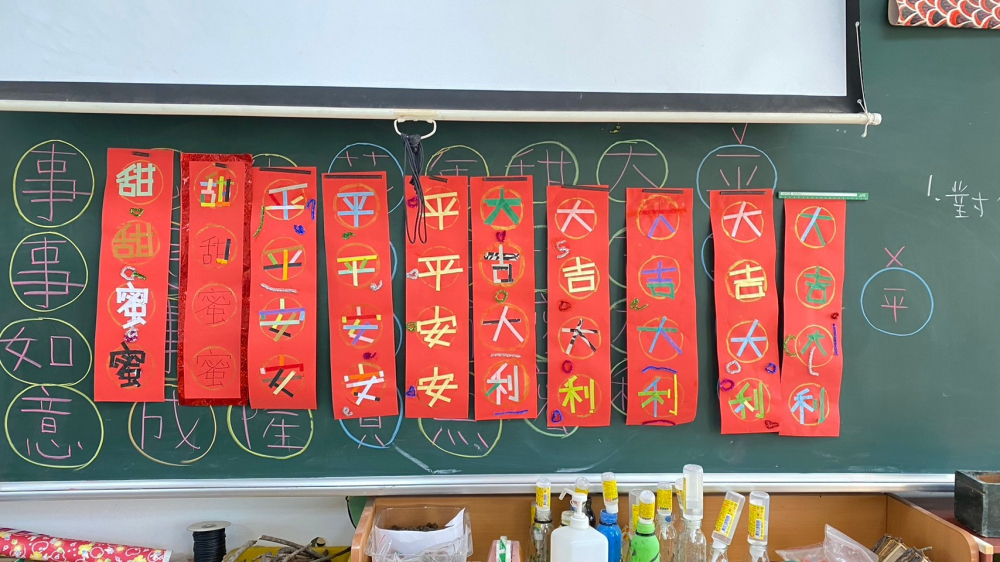 事事如意
甜甜蜜蜜
甜甜蜜蜜
平平安安
平平安安
平平安安
大吉大利
大吉大利
大吉大利
大吉大利
大吉大利
大
平
平